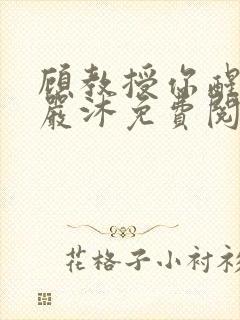 顾教授你醒
嚴沐免費閱
花格子小衬衫